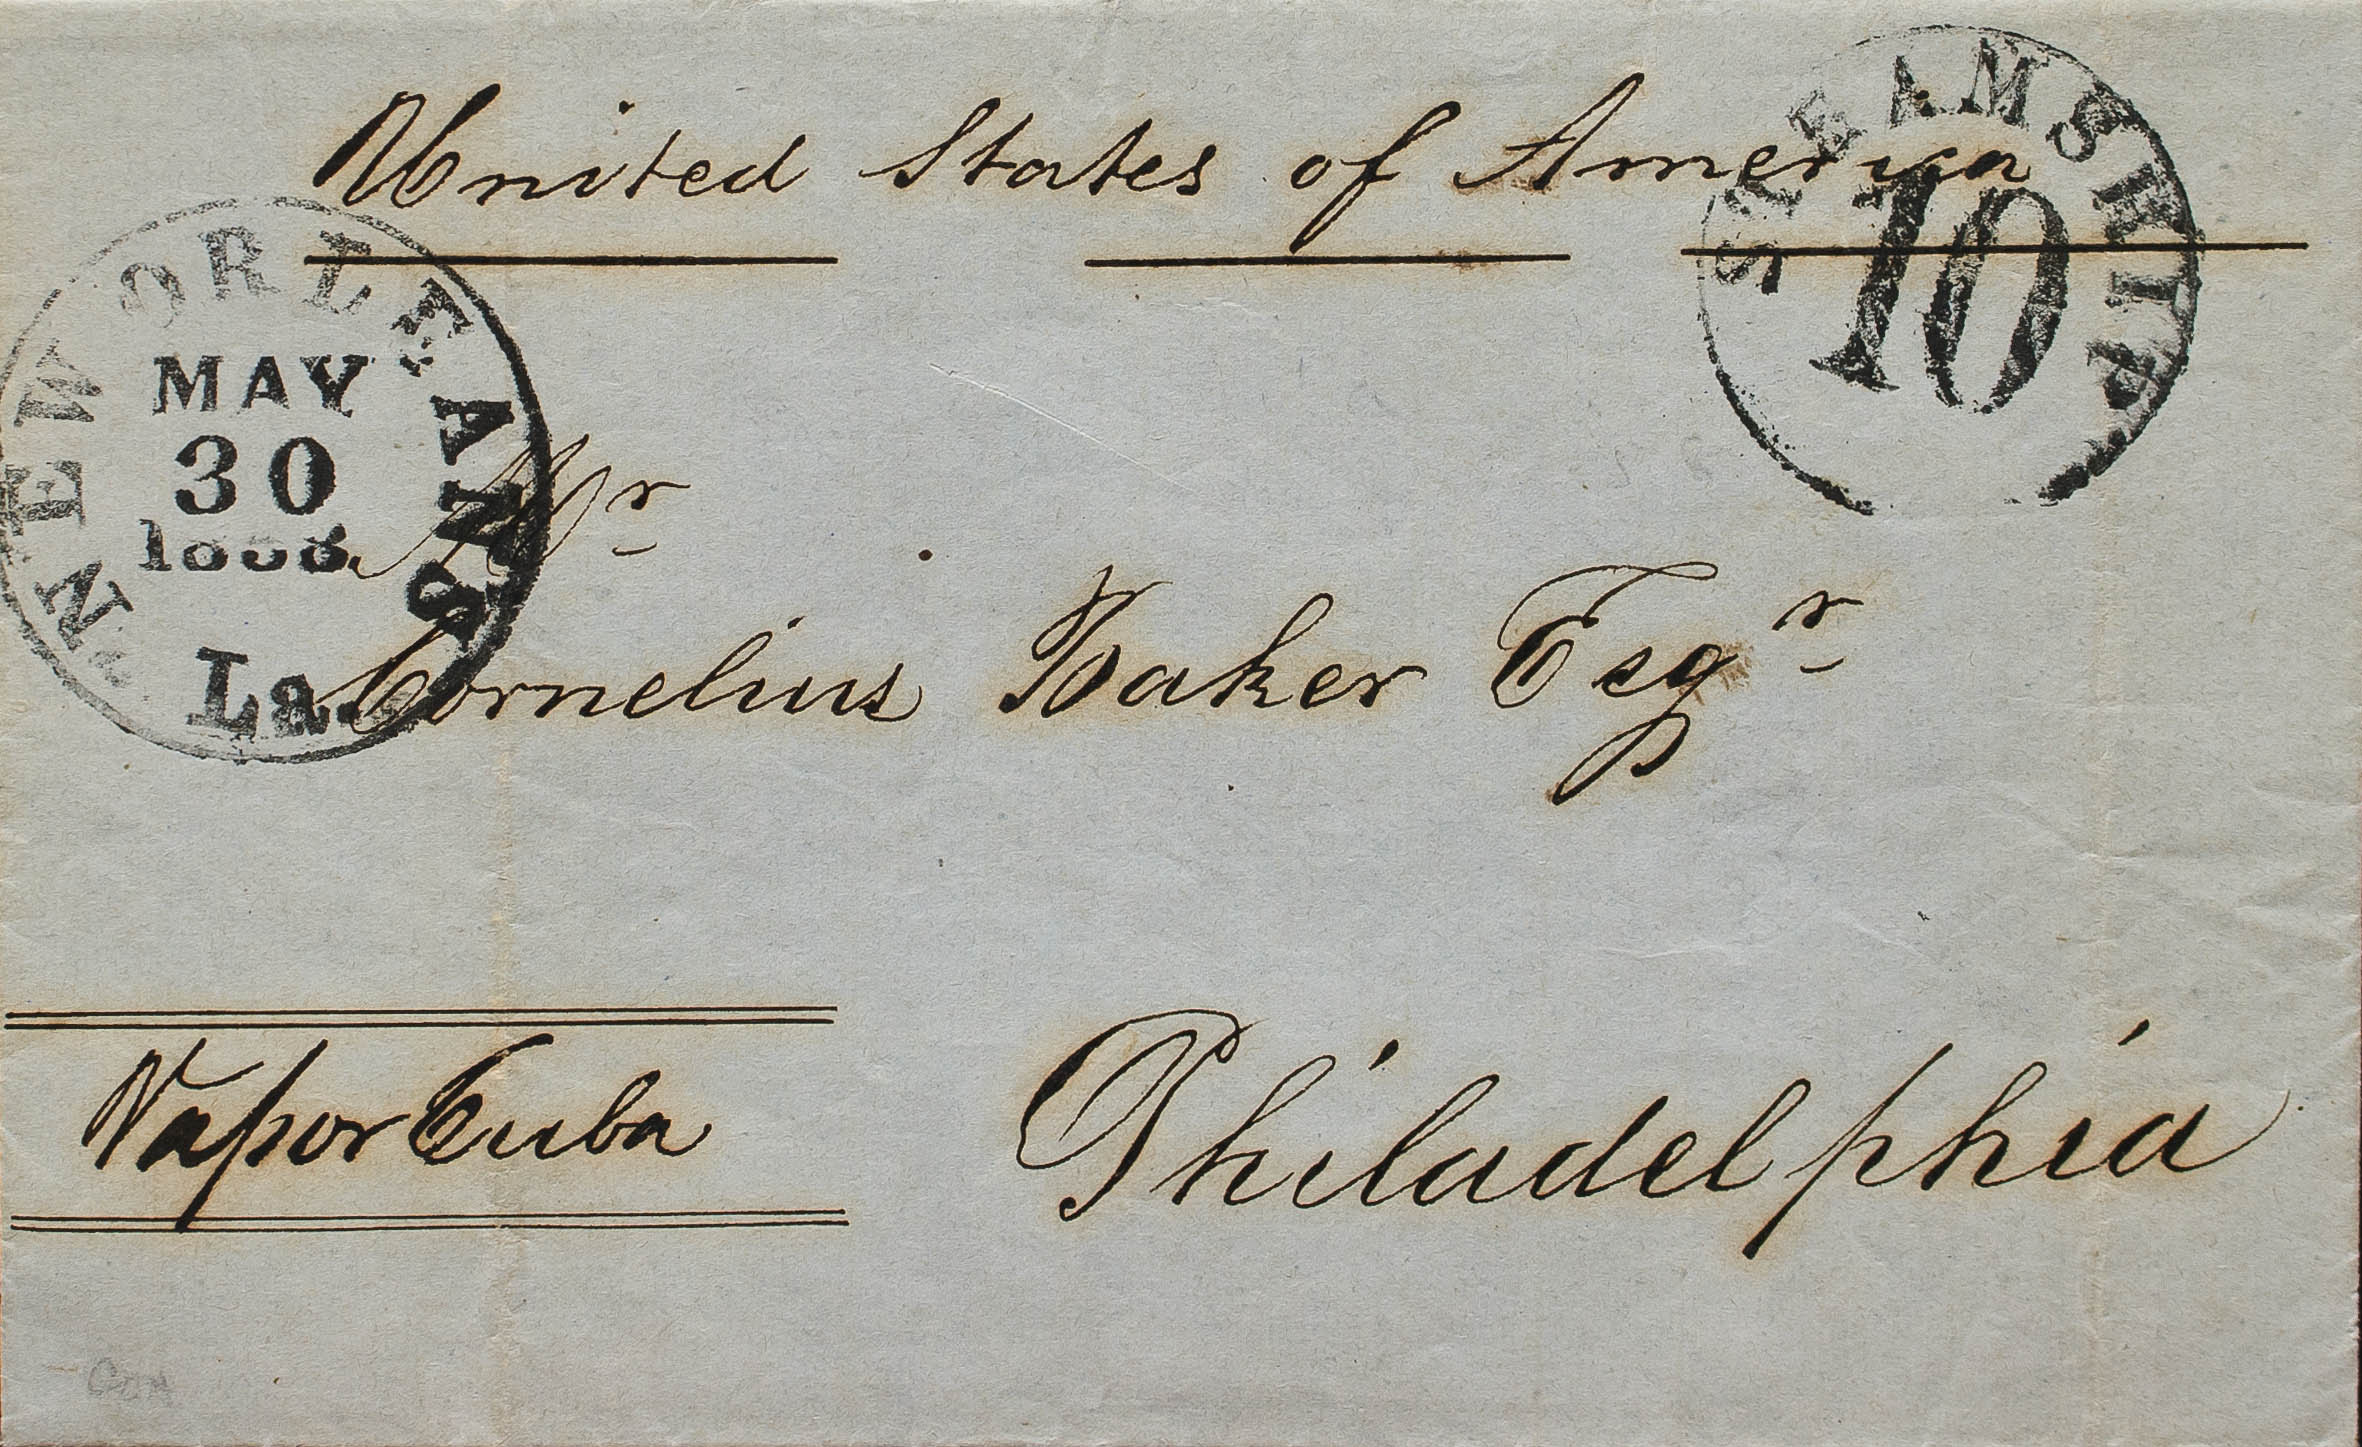 United States of America
STEAMSHIP
10
NEW ORLEANS
MAY
30
La.
Mr
Cornelius Baker Esqr
Vapor Cuba
Philadelphia